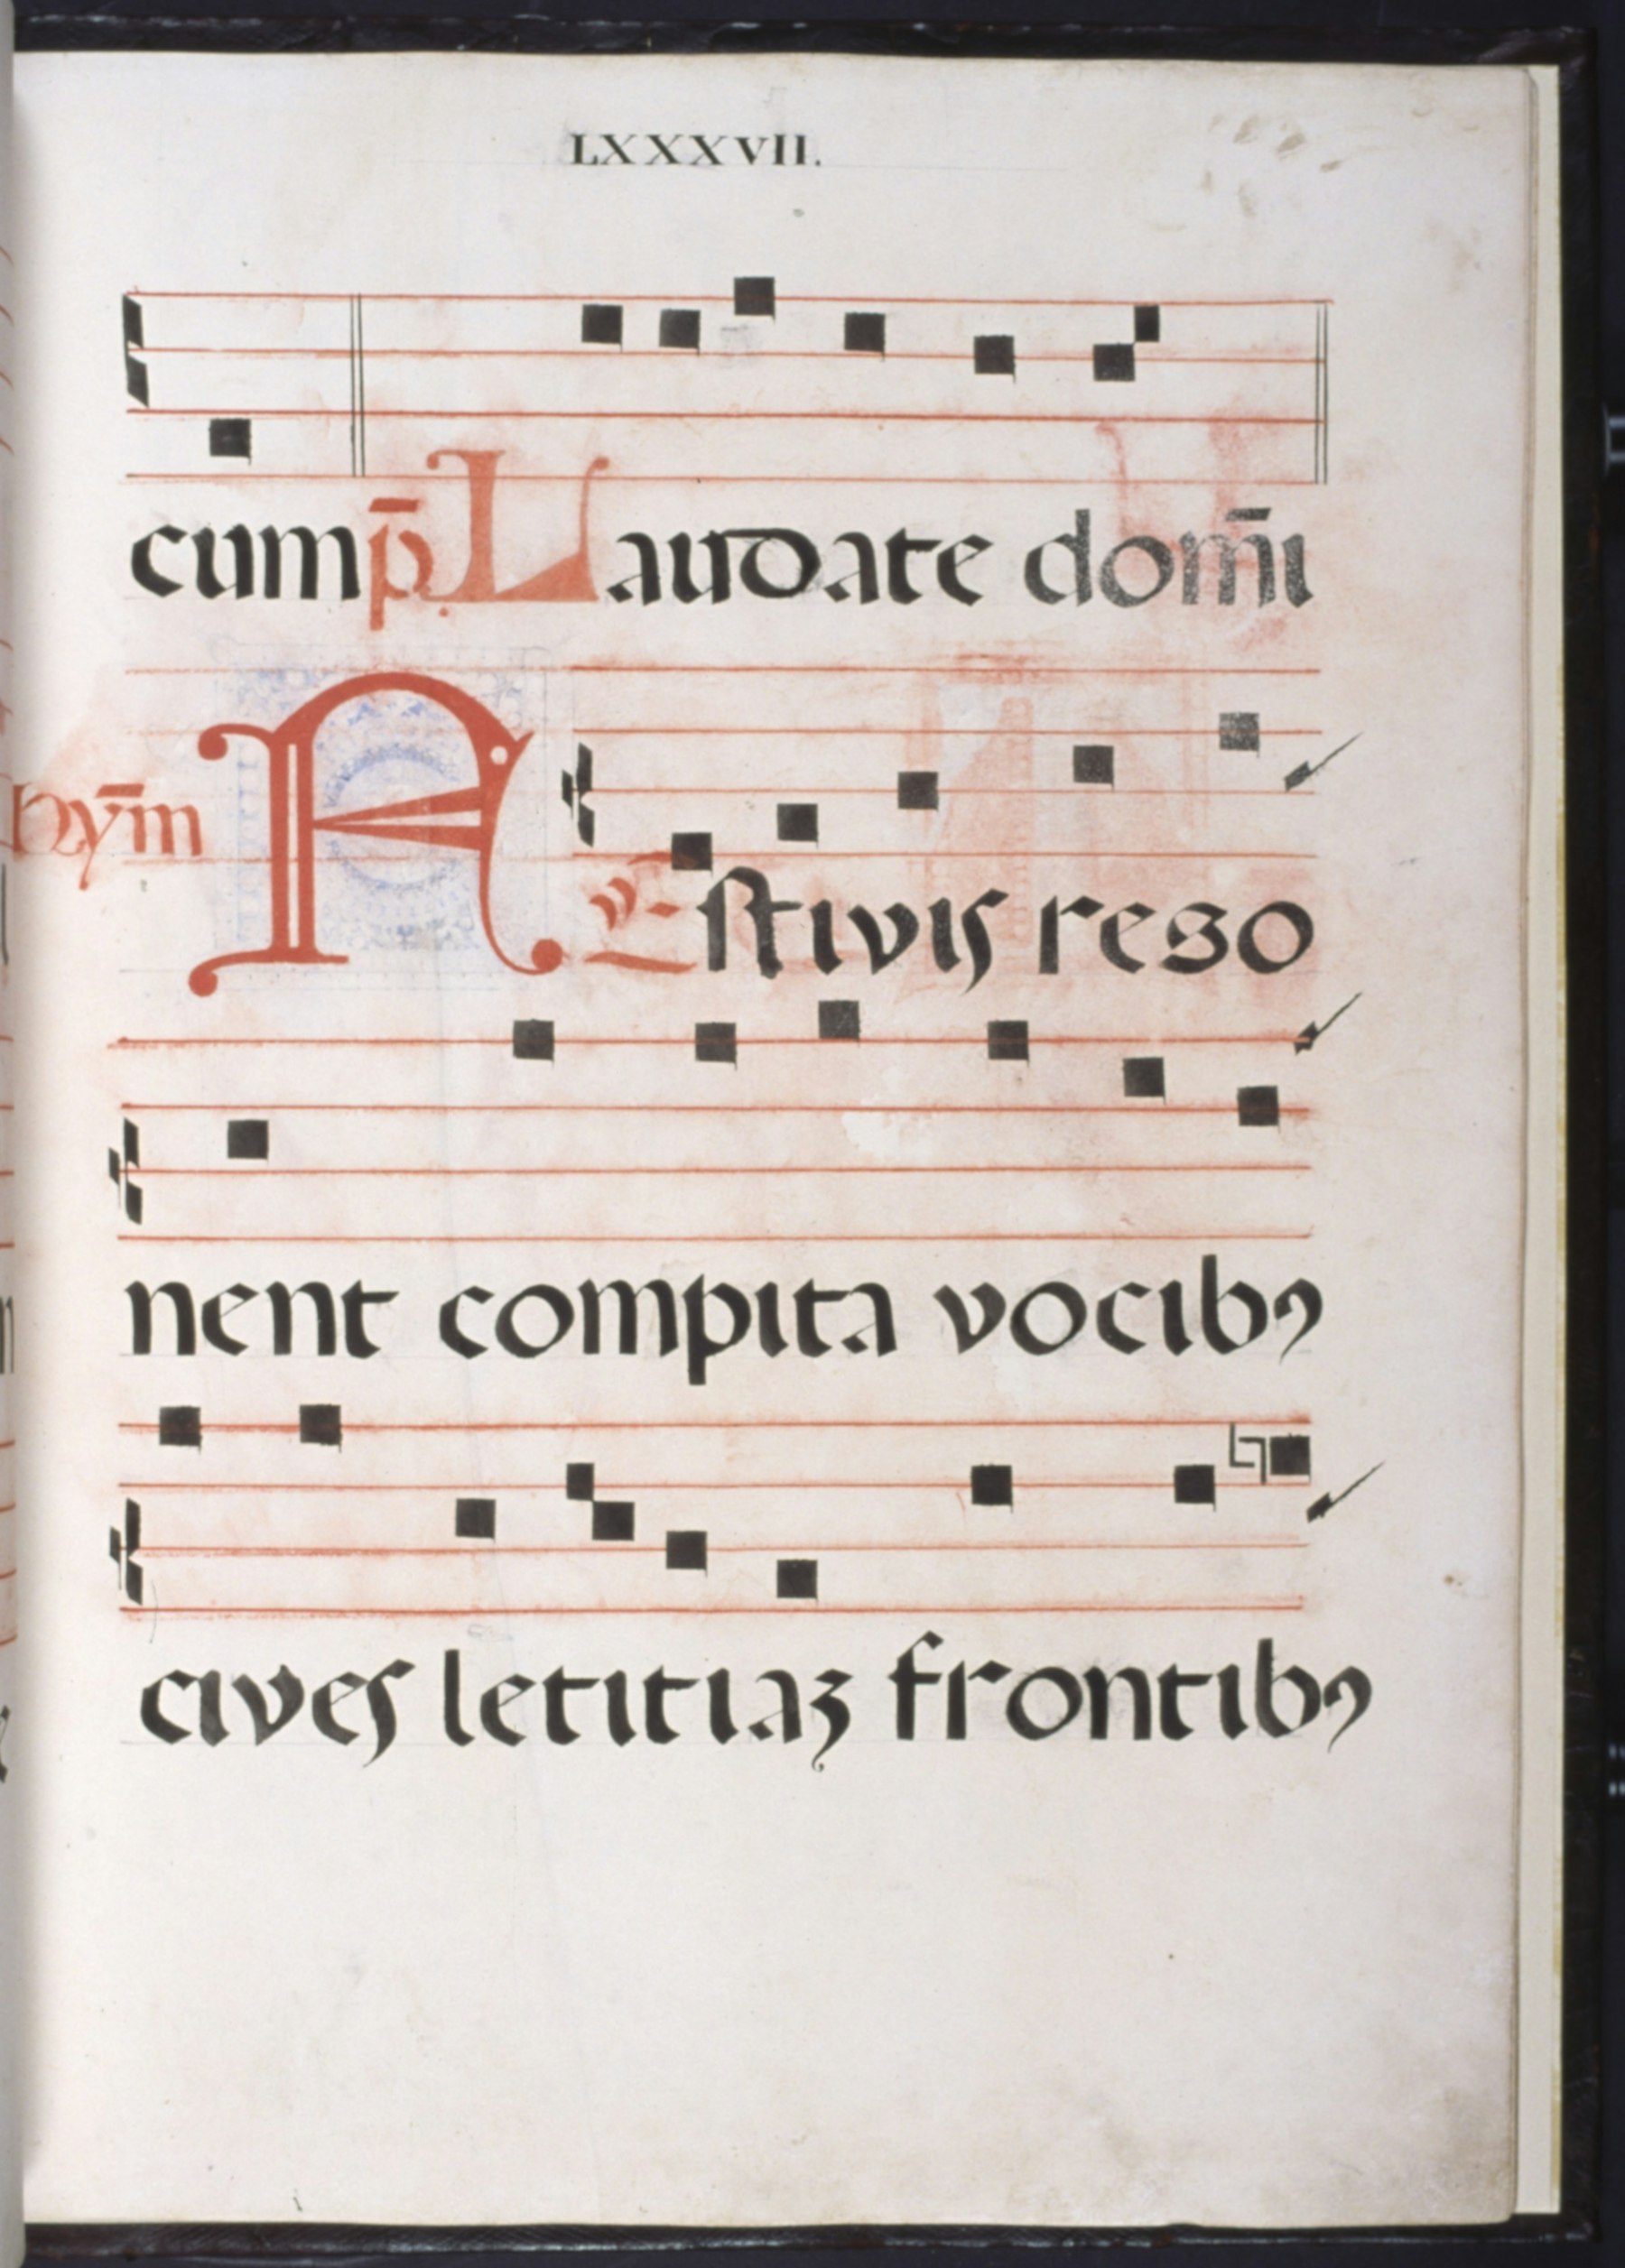 LXXXVII.
cum p̄. Laudate dom̄i
hȳm A℣-stivis reso
nent compita vocibꝯ
cives letitiaꝫ frontibꝯ